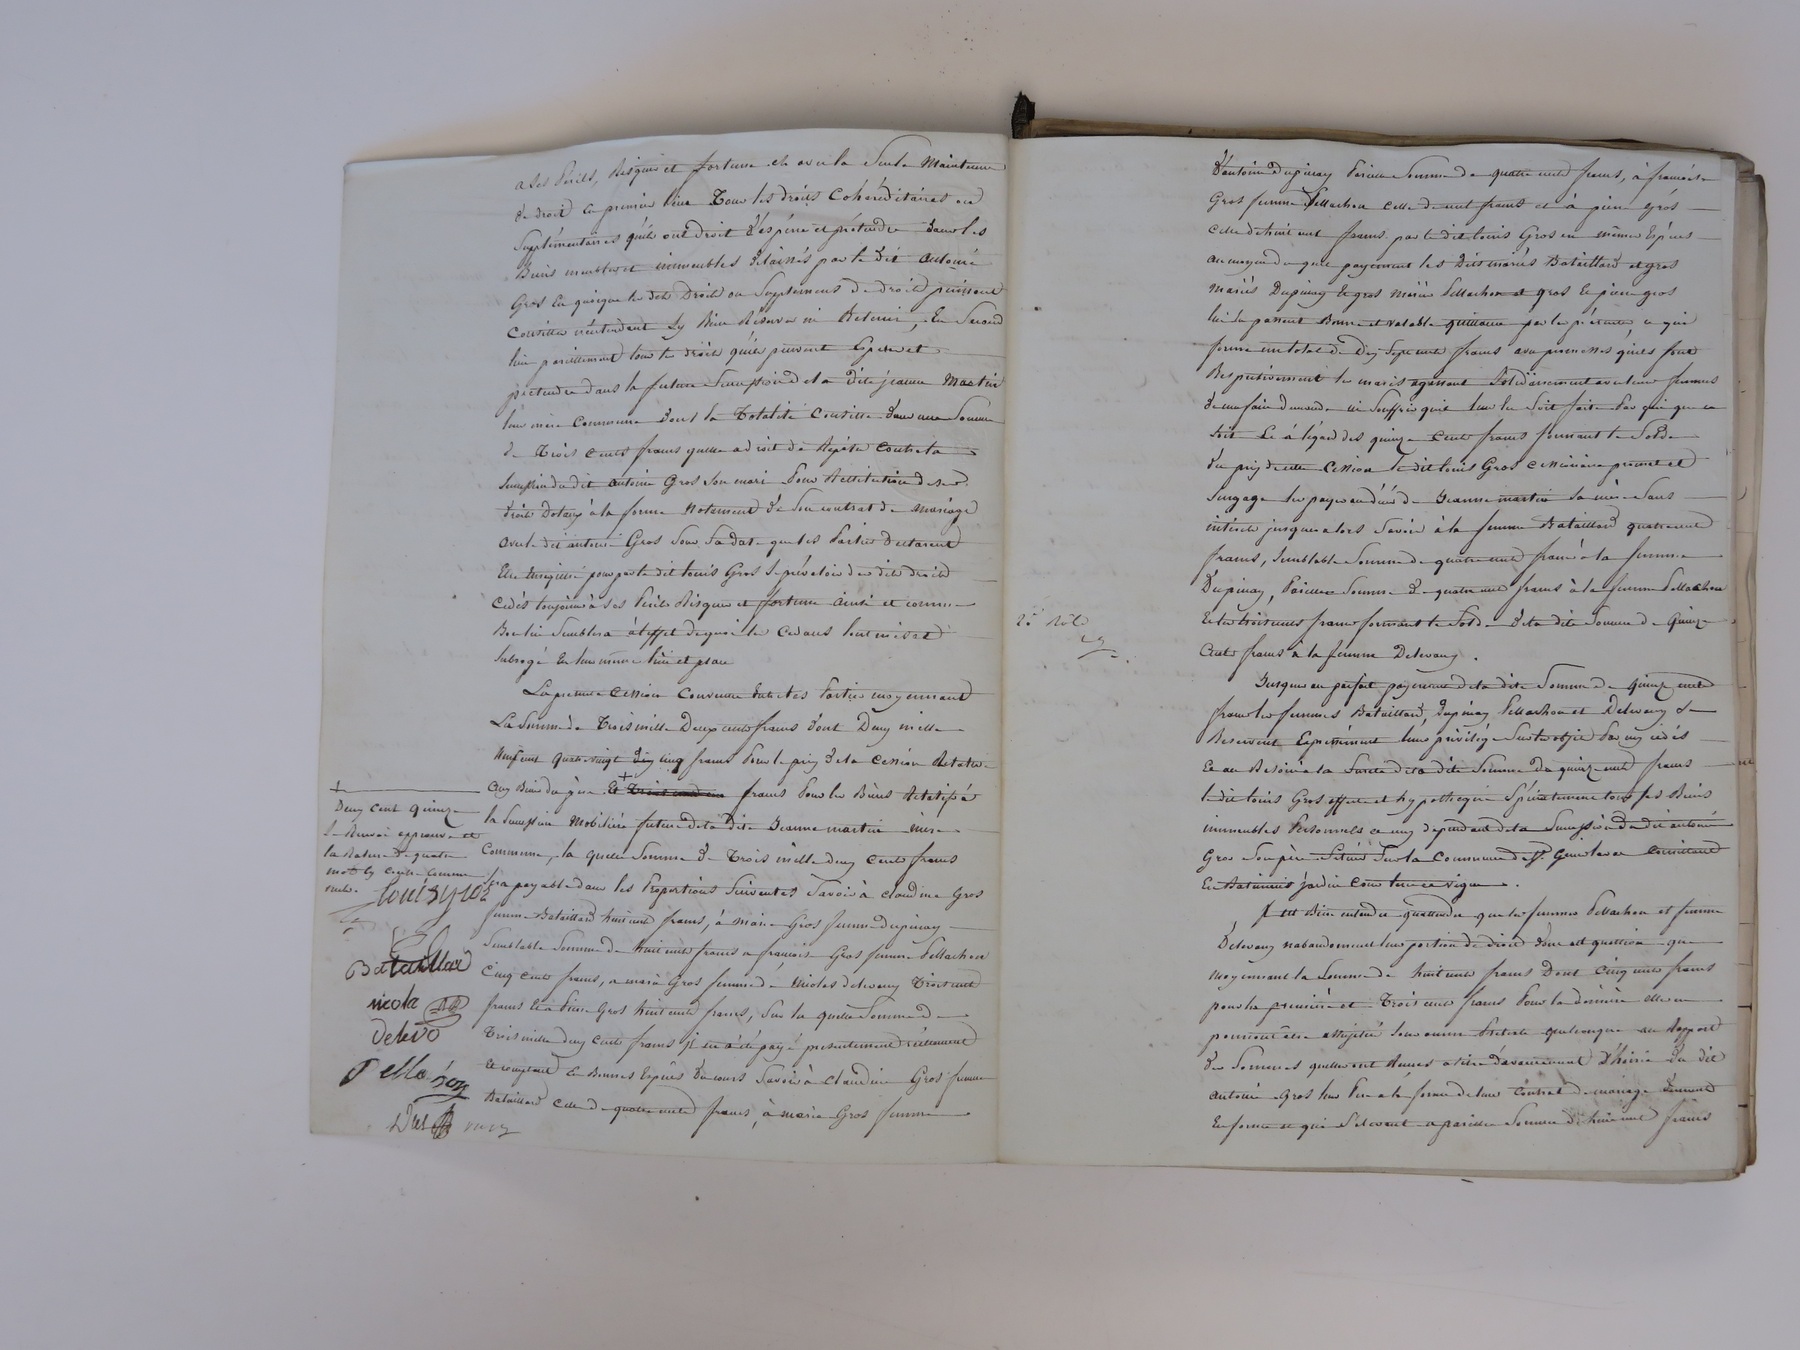 a ses Perils, Risques et fortune et avec la Seule Maintenue
de droit En premier lieu Tous les droits Cohéréditaires ou
Supplémentaires qu'ils ont droit d'espérer et prétendre dans les
Biens meubles et immeubles délaissés par le dit antoine
Gros En quoique les dits Droits ou Supplements de droit puissent
Consister n'entendant s'y Rien Réserver ni Retenir, En Second
lieu pareillement tous les droits qu'ils peuvent Esperer et
prétendre dans la future Succession de la dite jeanne Martin
leur mère Commune dont la Totalité Consiste dans une Somme
de Trois cents francs qu'elle a droit de Répéter Contre la
Succession du dit antoine Gros Son mari Pour Restitution de ses
droits Dotaux à la forme Notament de Son contrat de mariage
avec le dit antoine Gros Sous Sa date que les Parties Declarent
Etre Enregistré pour par le dit louis Gros Se prévaloir des dits droits
Cédés toujours à Ses Perils Risques et fortune ainsi et comme
Bon lui Semblera à l'effet de quoi les Cédants l'ont mis et
Subrogé En leur même lieu et place
La présente Cession Convenue Entre les Parties moyennant
La Somme de Trois mille Deux cents francs dont Deux mille
Neuf cent Quatre vingt francs Pour le prix de la Cession Relative
aux Biens du père Et + francs Pour les Biens Relatifs à
la Succession Mobilière future de la dite Jeanne martin mère
Commune, la quelle Somme de Trois mille deux Cents francs
Sera payable dans les Proportions Suivantes Savoir à claudine Gros
femme Bataillard huit cents francs, à marie Gros femme dupinay
Semblable Somme de huit cents francs a françoise Gros femme Pellachon
Cinq cents francs, a maria Gros femme de Nicolas delevaux Trois cents
francs Et à Pierre Gros huit cents francs, Sur la quelle Somme de
Trois mille deux Cents francs il en a été payé présentement réellement
Et comptant En Bonnes Espèces du cours Savoir à Claudine Gros femme
Bataillard Celle de quatre cents francs, à marie Gros femme
+
Deux Cent Quinze
le Renvoi approuvé et
la Rature de quatre
mots
louis gros
Bataillard
nicola
delevo
Pellachon
D'antoine Dupinay Pareille Somme de quatre cents francs, à françoise
Gros femme Pellachon celle de cent francs et à pierre Gros
Celle de huit cent francs par le dit louis Gros en mêmes Espèces
au moyen de quel payement les Dits mariés Bataillard et gros
mariés Dupinay Et gros mariés Pellachon et gros Et pierre gros
lui En passent Bonne et valable quittance par les présentes, ce qui
forme un total de Dix Sept cents francs avec promesses qu'ils font
Respectivement les maris agissant Solidairement avec leurs femmes
de n'en faire demande ni Souffrir qu'il leur En Soit fait Par qui que ce
Soit Et à l'égard des quinze Cents francs formant le Solde
du prix de cette Cession le dit louis Gros cessionnaire promet et
S'engage les payer au décès de Jeanne martin Sa mère Sans
intérêts jusques alors Savoir à la femme Bataillard quatre cent
francs, Semblable Somme de quatre cents francs à la femme
Dupinay, Pareille Somme de quatre cents francs à la femme Pellachon
Et les trois cents francs formant le Solde de la dite Somme de Quinze
Cents francs à la femme Delevaux.
Jusques au parfait payement de la dite Somme de Quinze cents
francs les femmes Bataillard, Dupinay Pellachon et Delevaux Se
Reservent Expressément leurs privilège Sur les objets Par eux cédés
Et au Besoin à la Sureté de la dite Somme de quinze cents francs
le dit louis Gros affecte et hypothèque Spécialement tous Ses Biens
immeubles Personnels ceux dépendant de la Succession du dit antoine
Gros Son père Situés Sur la Commune de Consistant
En Batiments jardin Cour terre et vigne.
Il Est Bien entendu que les femmes Pellachon et femme
Delevaux n'abandonnent leur portion de droit dont est question que
moyennant la Somme de huit cents francs Dont Cinq cents francs
pour la première et Trois cents francs Pour la dernière elles ne
pourront être assujetties Sous aucun Prétexte quelconque au Rapport
des Sommes qu'elles ont Reçues a titre d'avancement d'hoirie du dit
antoine Gros leur Père a la forme de leur Contrat de mariage
En forme et qui S'élevent a pareille Somme de huit cents francs
25e Rôle